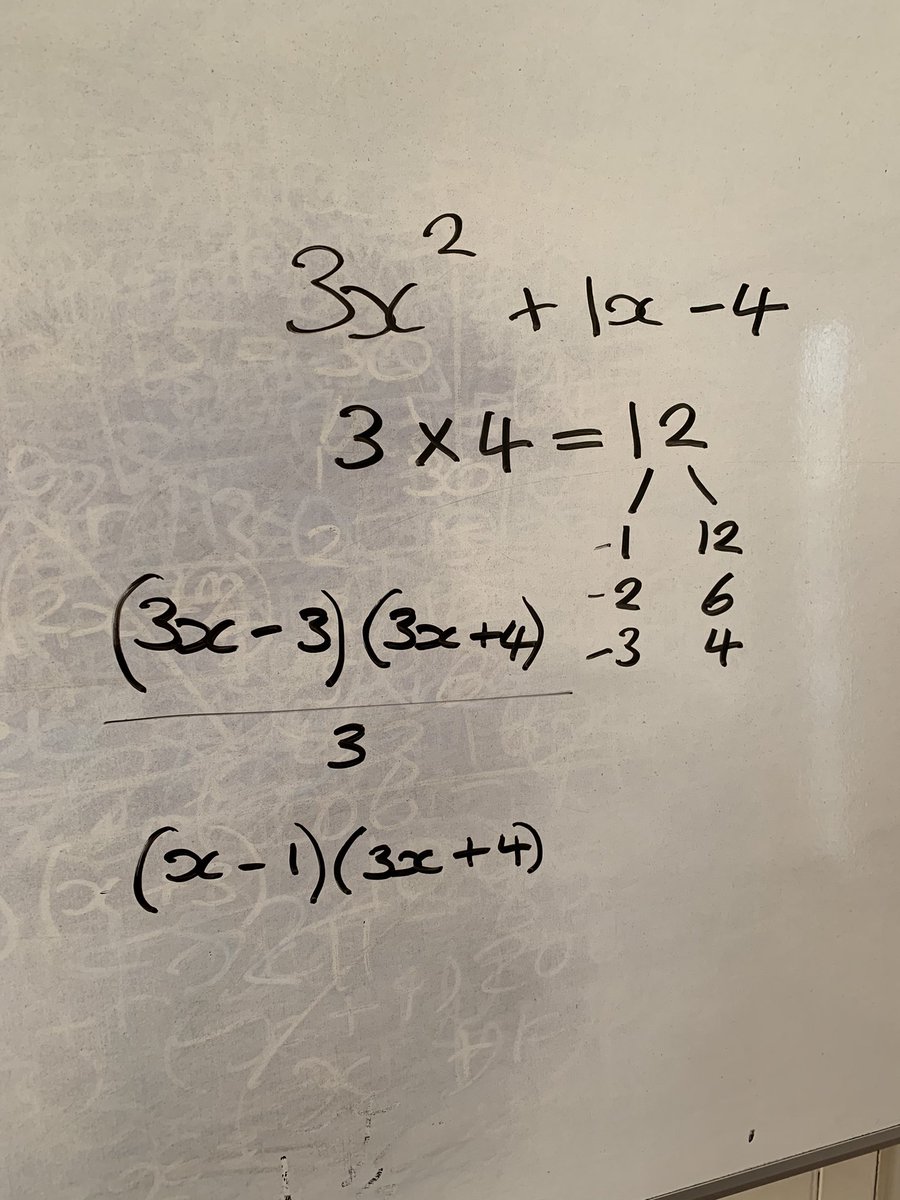 3x² + 1x - 4
3 × 4 = 12
-1 12
-2 6
-3 4
(3x - 3)(3x + 4)
3
(x - 1)(3x + 4)